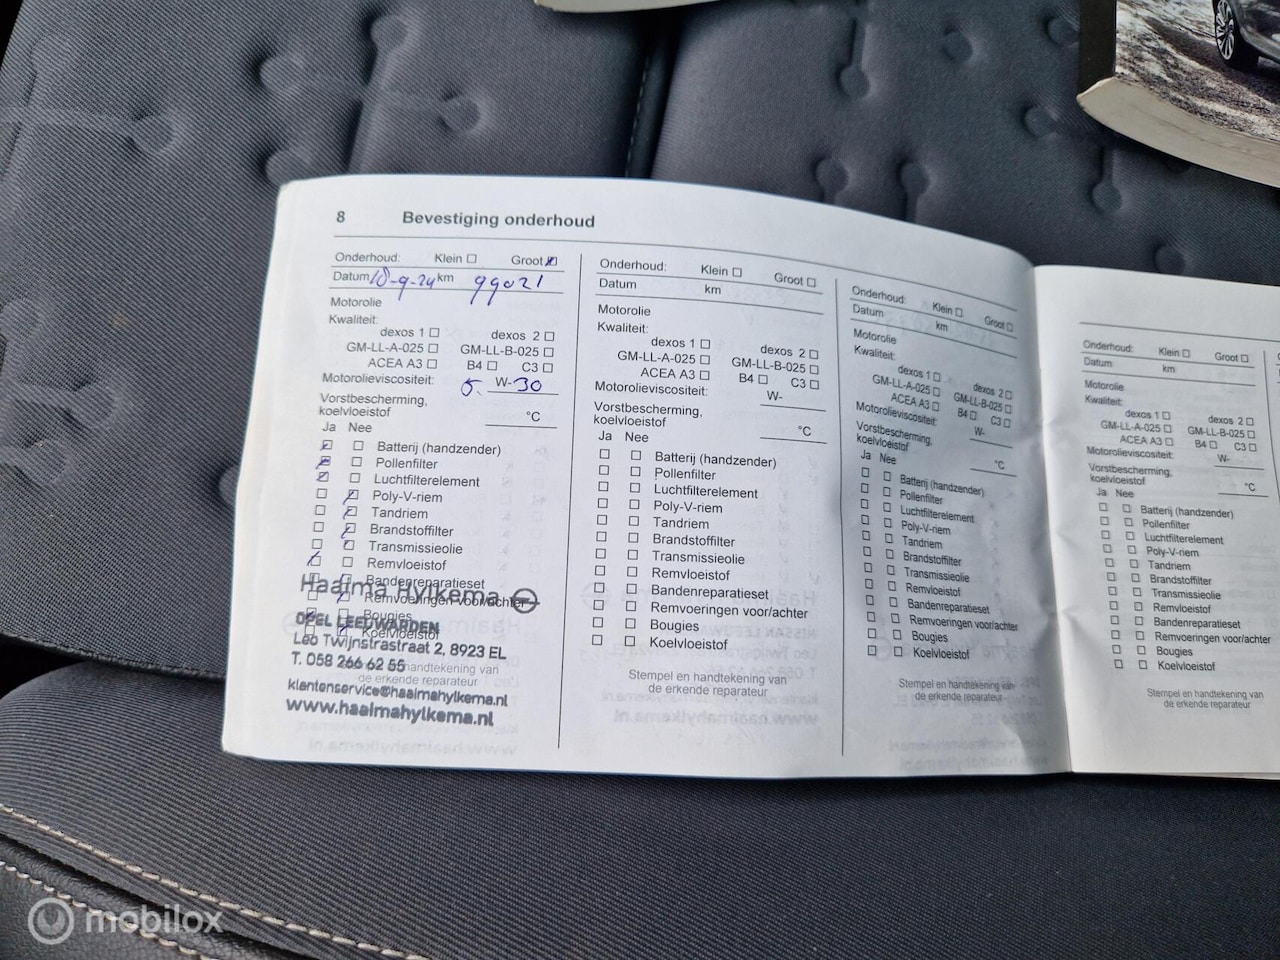 8 Bevestiging onderhoud
Onderhoud: Klein Groot
Datum 10-9-24 km 99021
Motorolie
Kwaliteit:
dexos 1 dexos 2
GM-LL-A-025 GM-LL-B-025
ACEA A3 B4 C3
Motorolieviscositeit: 5. W- 30
Vorstbescherming,
koelvloeistof °C
Ja Nee
Batterij (handzender)
Pollenfilter
Luchtfilterelement
Poly-V-riem
Tandriem
Brandstoffilter
Transmissieolie
Remvloeistof
Bandenreparatieset
Remvoeringen voor/achter
Bougies
Koelvloeistof
Stempel en handtekening van
de erkende reparateur
Haaima Hylkema
OPEL LEEUWARDEN
Leo Twijnstrastraat 2, 8923 EL
T. 058 266 62 55
klantenservice@haaimahylkema.nl
www.haaimahylkema.nl
Onderhoud: Klein Groot
Datum km
Motorolie
Kwaliteit:
dexos 1 dexos 2
GM-LL-A-025 GM-LL-B-025
ACEA A3 B4 C3
Motorolieviscositeit: W-
Vorstbescherming,
koelvloeistof °C
Ja Nee
Batterij (handzender)
Pollenfilter
Luchtfilterelement
Poly-V-riem
Tandriem
Brandstoffilter
Transmissieolie
Remvloeistof
Bandenreparatieset
Remvoeringen voor/achter
Bougies
Koelvloeistof
Stempel en handtekening van
de erkende reparateur
Onderhoud: Klein Groot
Datum km
Motorolie
Kwaliteit:
dexos 1 dexos 2
GM-LL-A-025 GM-LL-B-025
ACEA A3 B4 C3
Motorolieviscositeit: W-
Vorstbescherming,
koelvloeistof °C
Ja Nee
Batterij (handzender)
Pollenfilter
Luchtfilterelement
Poly-V-riem
Tandriem
Brandstoffilter
Transmissieolie
Remvloeistof
Bandenreparatieset
Remvoeringen voor/achter
Bougies
Koelvloeistof
Stempel en handtekening van
de erkende reparateur
Onderhoud: Klein Groot
Datum km
Motorolie
Kwaliteit:
dexos 1 dexos 2
GM-LL-A-025 GM-LL-B-025
ACEA A3 B4 C3
Motorolieviscositeit: W-
Vorstbescherming,
koelvloeistof °C
Ja Nee
Batterij (handzender)
Pollenfilter
Luchtfilterelement
Poly-V-riem
Tandriem
Brandstoffilter
Transmissieolie
Remvloeistof
Bandenreparatieset
Remvoeringen voor/achter
Bougies
Koelvloeistof
Stempel en handtekening van
de erkende reparateur
mobilox